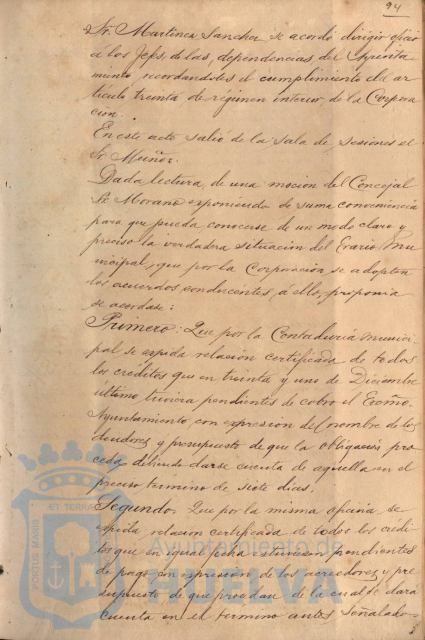 94
Sr. Martinez Sanchez se acordó dirigir oficio
á los Jefs. de las dependencias del Ayunta
miento recordandoles el cumplimiento del ar
tículo treinta de régimen interior de la Corpora
ción.
En este acto salió de la sala de sesiones el
Sr Muñoz.
Dada lectura de una mocion del Concejal
Sr Morano esponiendo de suma conveniencia
para que pueda conocerse de un modo claro y
preciso la verdadera situación del Erario mu
nicipal, que por la Corporación se adopten
los acuerdos conducentes á ello, proponia
se acordase:
Primero: Que por la Contaduría munici
pal se expida relación certificada de todos
los creditos que en treinta y uno de Diciembre
último tuviera pendientes de cobro el Excmo.
Ayuntamiento con expresion del nombre de los
deudores y presupuesto de que la obligación pro
ceda, debiendo darse cuenta de aquella en el
preciso termino de siete dias.
Segundo. Que por la misma oficina se
expida relacion certificada de todos los credi
tos que en igual fecha estuviesen pendientes
de pago con expresion de los acreedores y pre
supuesto de que procedan de la cual se dara
cuenta en el termino antes señalado.
PORTUS MARIS ET TERRAE
Ayuntamiento de
HUELVA